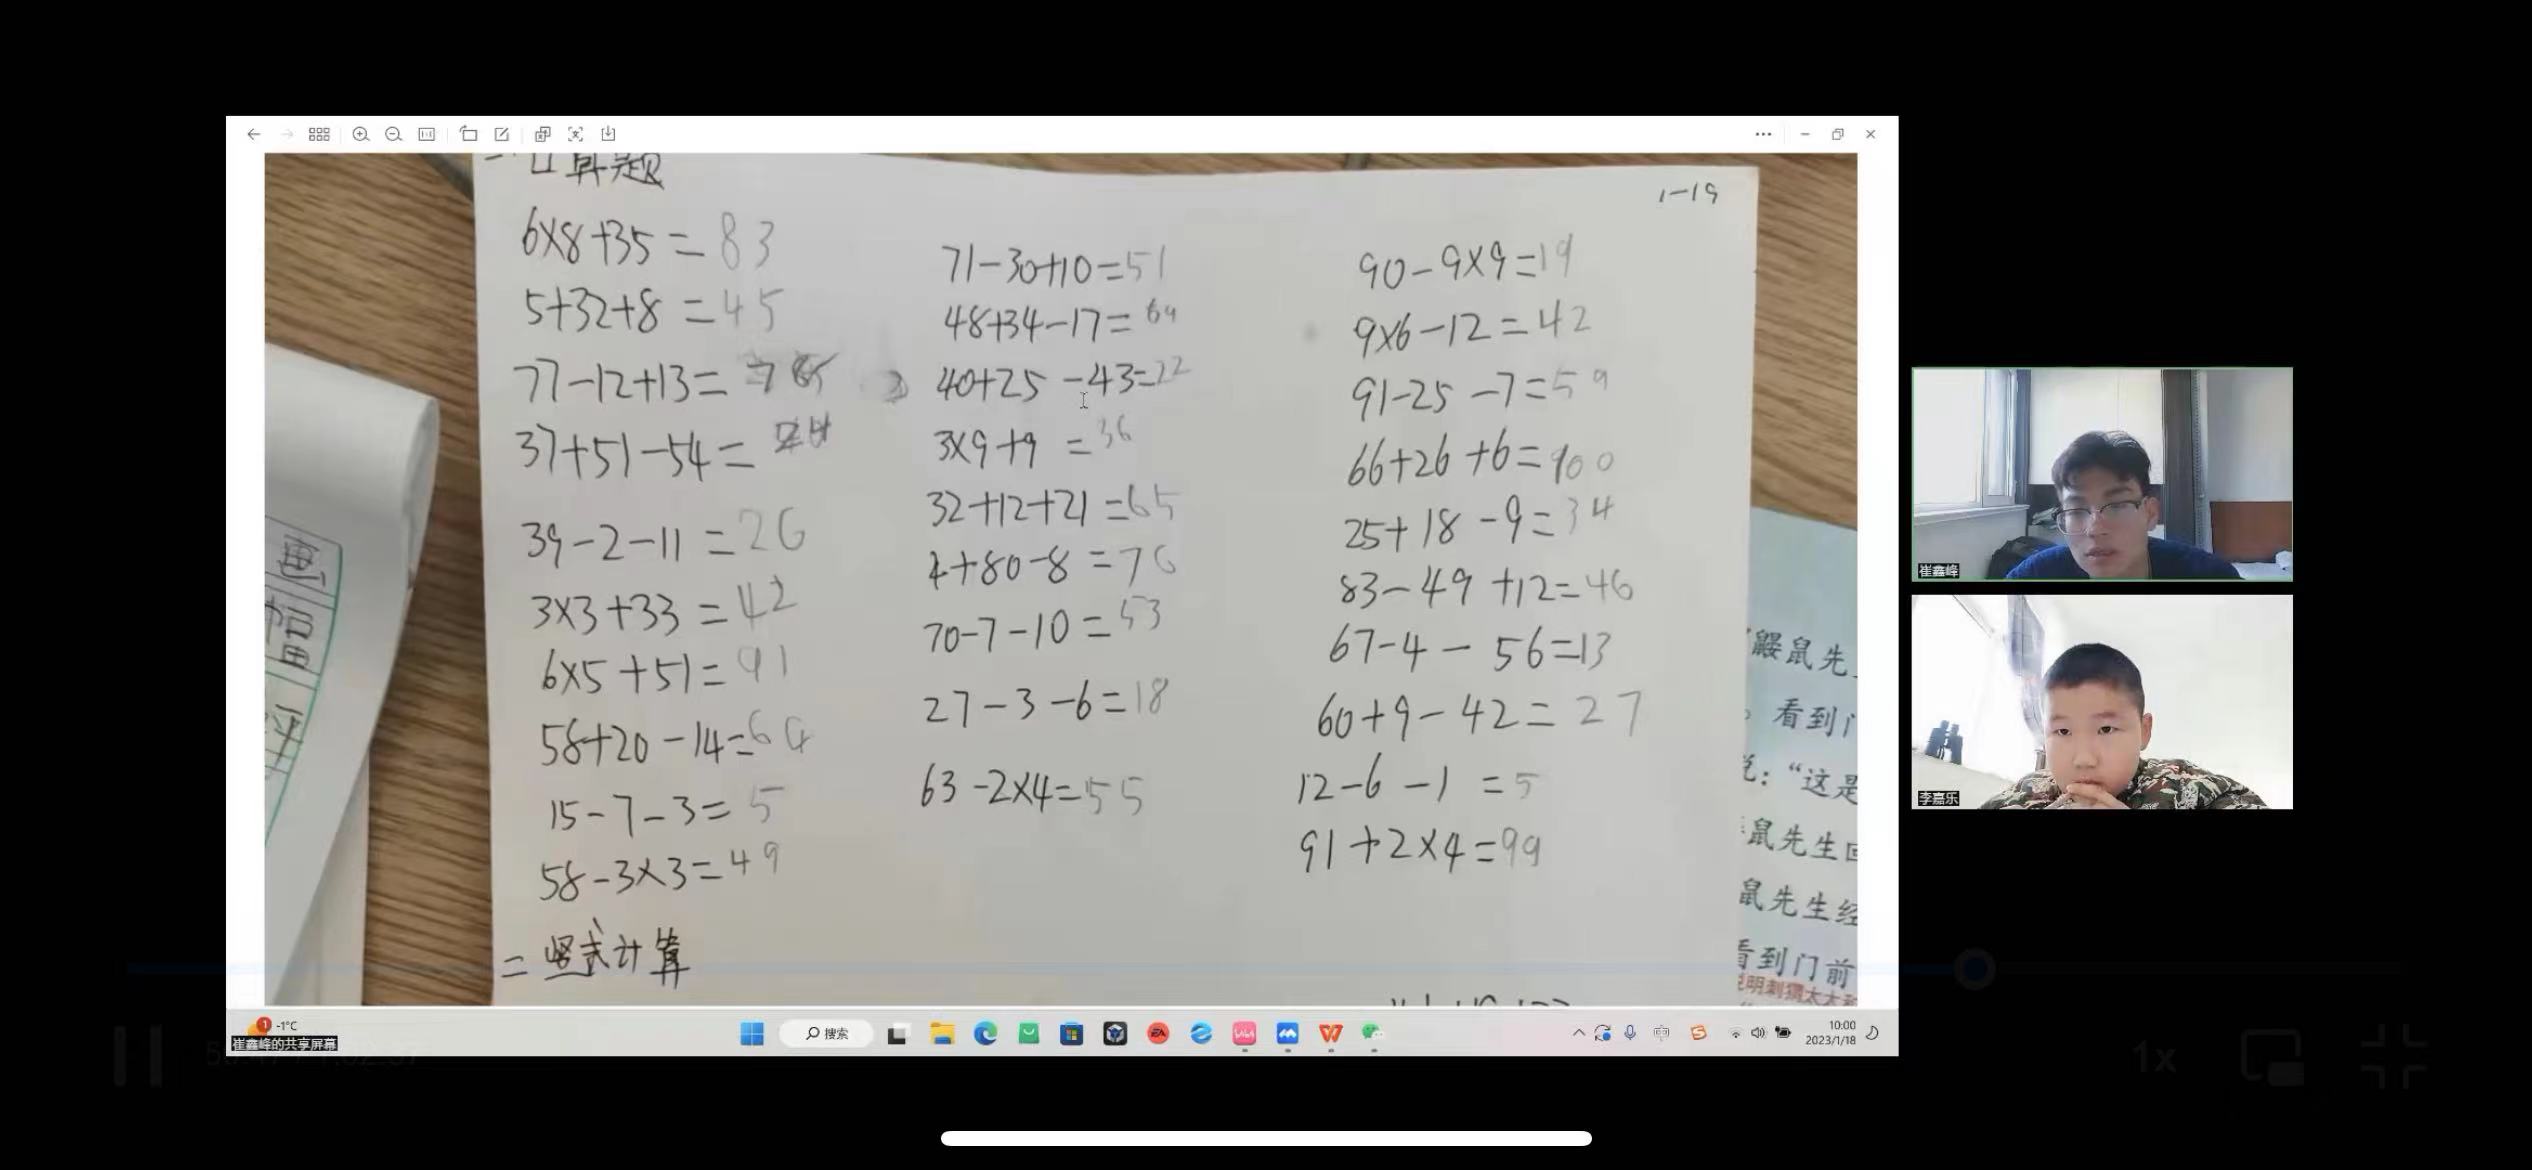 一 口算题
1-19
6×8+35=83
5+32+8=45
77-12+13=
37+51-54=
39-2-11=26
3×3+33=42
6×5+51=91
58+20-14=64
15-7-3=5
58-3×3=49
71-30+10=51
48+34-17=64
40+25-43=22
3×9+9=36
32+12+21=65
4+80-8=76
70-7-10=53
27-3-6=18
63-2×4=55
90-9×9=19
9×6-12=42
91-25-7=59
66+26+6=100
25+18-9=34
83-49+12=46
67-4-56=13
60+9-42=27
12-6-1=5
91+2×4=99
二 竖式计算
画
幅
鼹鼠先
。看到门
说:“这是
鼠先生回
鼠先生经
看到门前
说明刺猬太太和
崔鑫峰
李嘉乐
1
-1°C
崔鑫峰的共享屏幕
搜索
中
10:00
2023/1/18
1x